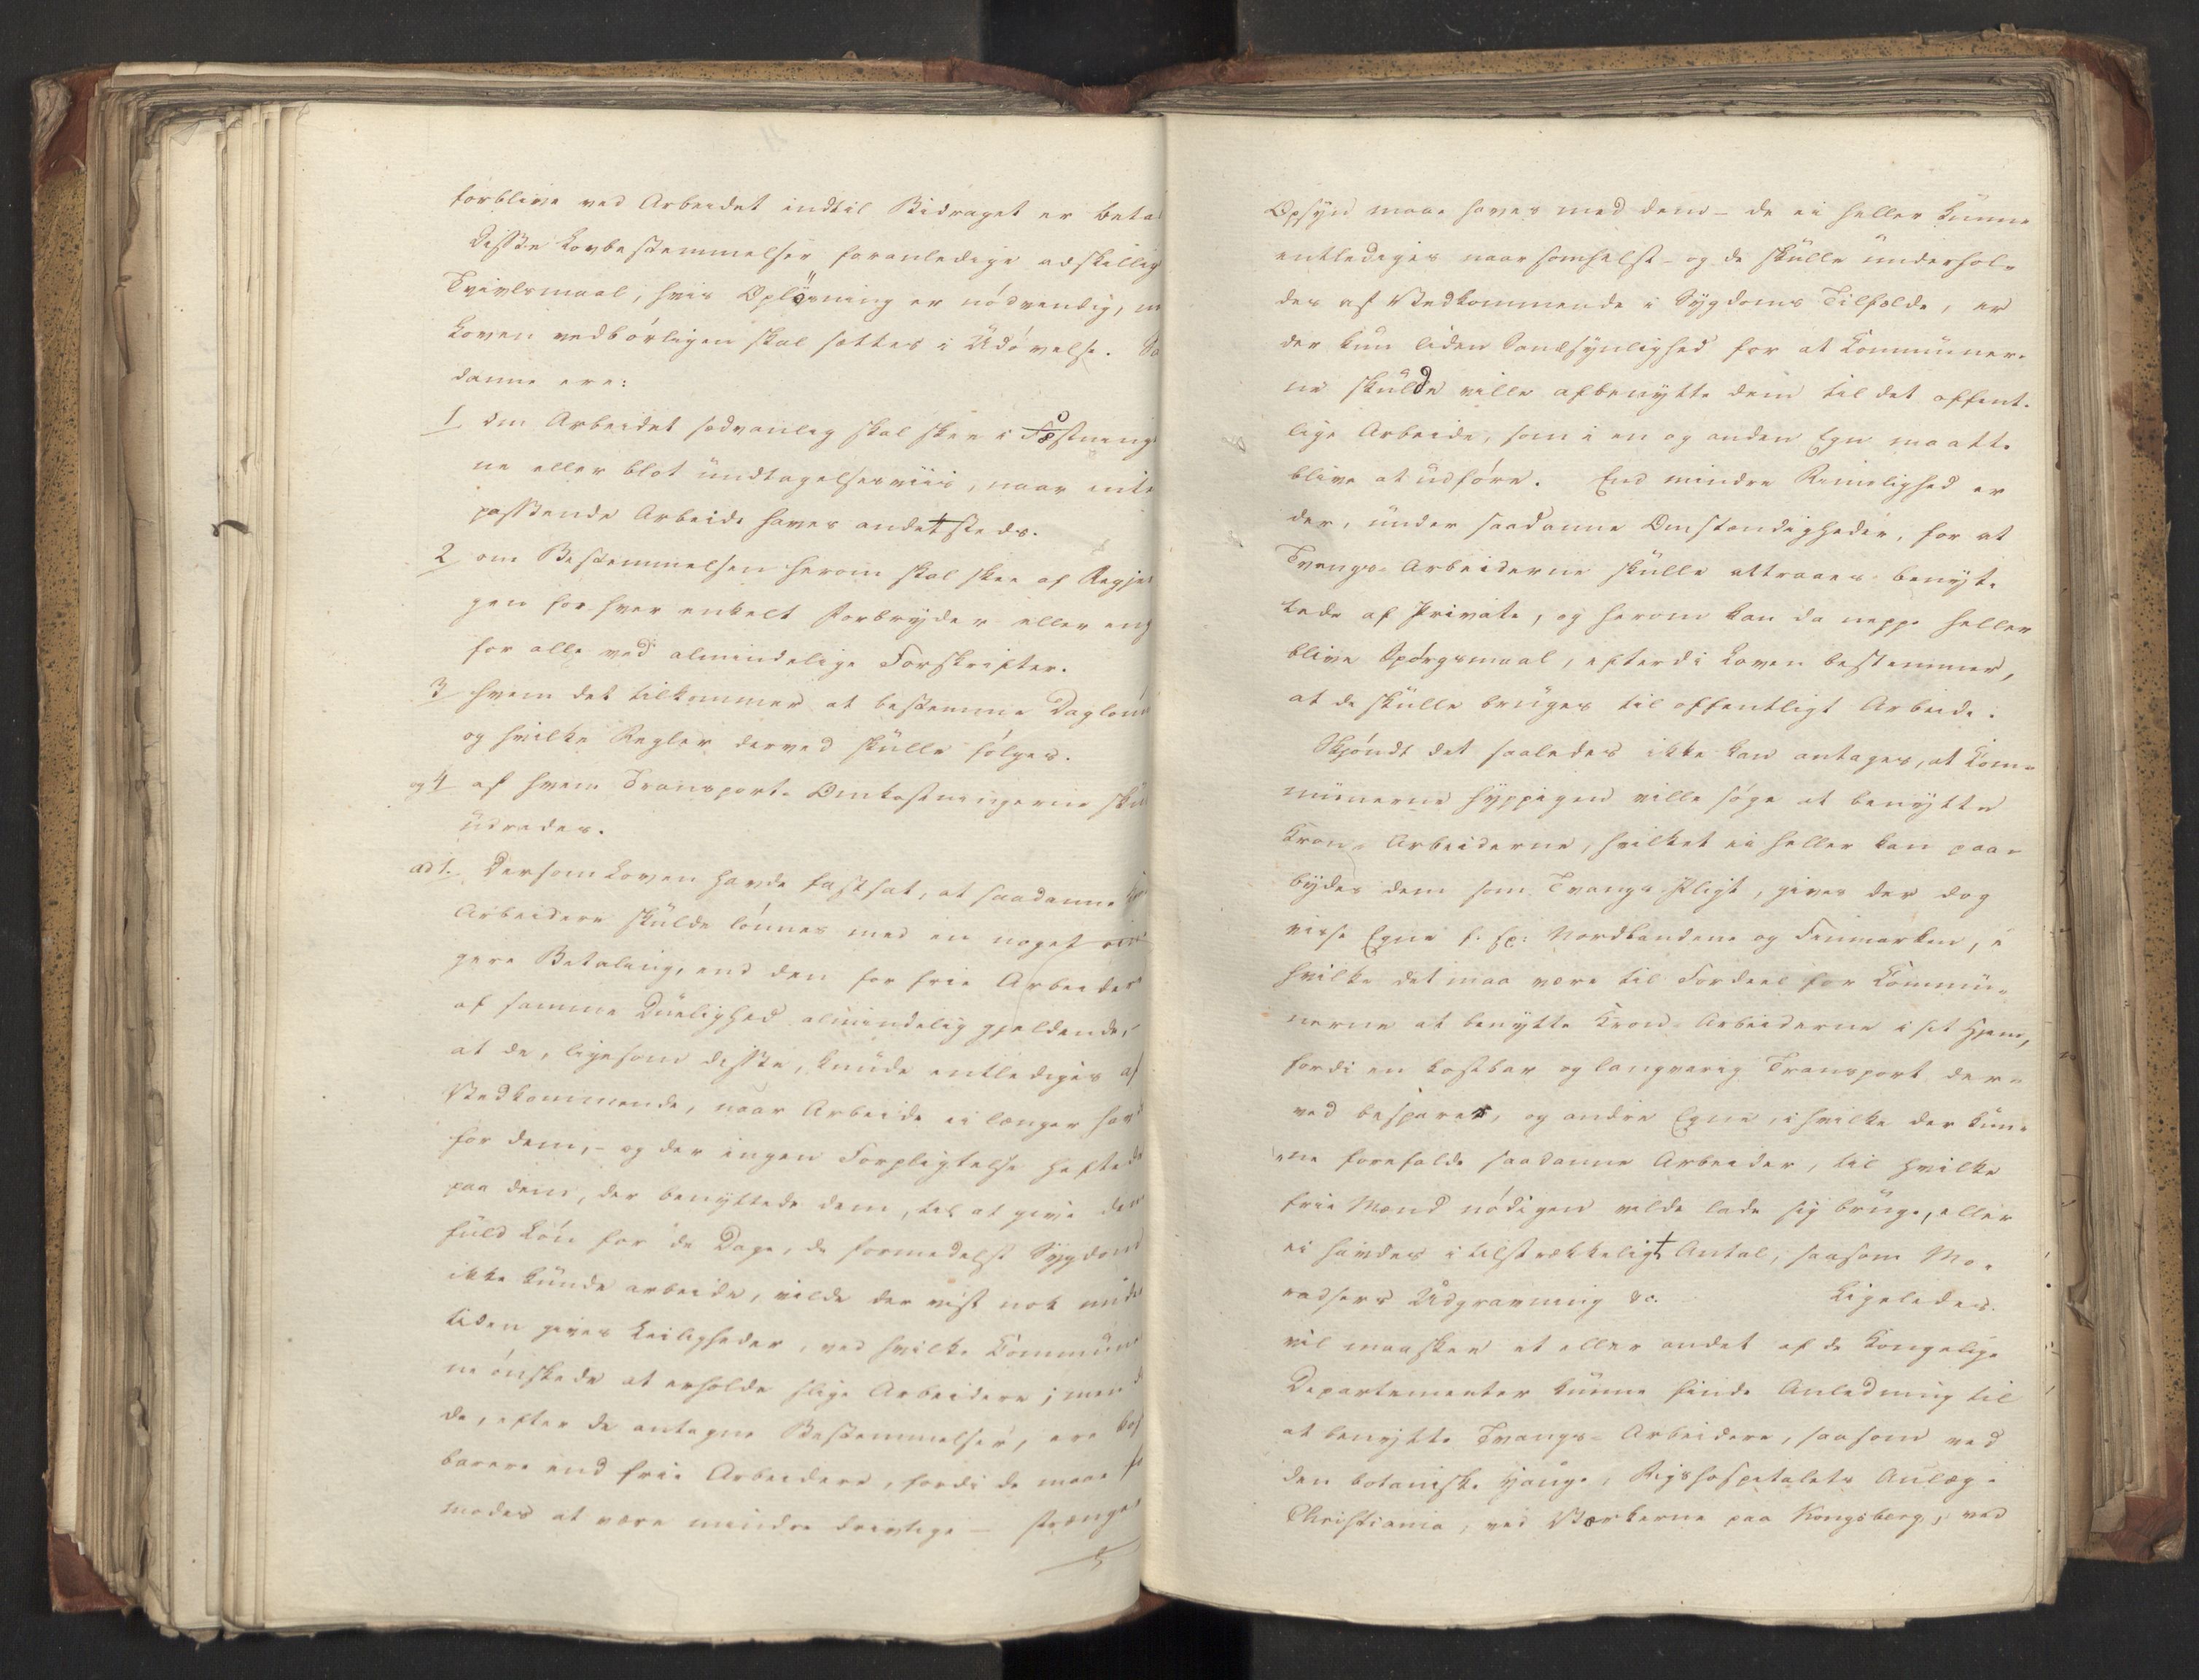 forblive ved Arbeidet indtil Bidraget er beta
Disse Lovbestemmelser foranledige adskillig
Tvivlsmaal, hvis Oplösning er nödvendig, 
Loven vedbörligen skal sættes i Udövelse. Sa
danne ere:
1 om Arbeidet sedvanlig skal skee i Fæstning
ne eller blot undtagelsesviis, naar intet
passende Arbeide haves andetsteds.
2 om Bestemmelsen herom skal skee af Regje
gen for hver enkelt Forbryder eller eng
for alle ved almindelige Forskrifter.
3 hvem det tilkommer at bestemme Daglön
og hvilke Regler derved skulle fölges.
og 4 af hvem Transport-Omkostningerne sku
udredes.
ad 1. Dersom Loven havde fastsat, at saadanne
Arbeidere skulde lönnes med en noget rin
gere Betaling, end den for frie Arbeider
af samme Duelighed almindelig gjeldende,
at de, ligesom disse, kunde entlediges af
Vedkommende, naar Arbeide ei længer hav
for dem, - og der ingen Forpligtelse heftede
paa dem, der benyttede dem, til at give dem
fuld Lön for de Dage, de formedelst Sygdom
ikke kunde arbeide, vilde der vist nok unde
tiden gives Leiligheder, ved hvilke Commune
ne önskede at erholde slige Arbeidere; men
de, efter de antagne Bestemmelser, ere kost
barere end frie Arbeidere, fordi de maae fo
modes at være mindre driftige - strænger
Opsyn maae haves med dem - de ei heller kunne
entlediges naar somhelst - og de skulle underhol-
des af Vedkommende i Sygdoms Tilfælde, er
der kun liden Sandsynlighed for at Kommuner-
ne skulde ville afbenytte dem til det offent-
lige Arbeide, som i en og anden Egn maatte
blive at udföre. End mindre Rimelighed er
der, under saadanne Omstændigheder, for at
Tvangs-Arbeiderne skulle attraaes benyt-
tede af Private, og herom kan da neppe heller
blive Spörgsmaal, efterdi Loven bestemmer,
at de skulle bruges til offentligt Arbeide.
Skjöndt det saaledes ikke kan antages, at Kom-
munerne hyppigen ville söge at benytte
Tvangs-Arbeiderne, hvilket ei heller kan paa-
bydes dem som Tvangs Pligt, gives der dog
visse Egne f. Ex: Nordlandene og Finmarken, i
hvilke det maa være til Fordeel for Commu-
nerne at benytte Tvangs-Arbeiderne i sit Hjem,
fordi en kostbar og langvarig Transport der-
ved bespares, og andre Egne, i hvilke der kun-
ne forefalde saadanne Arbeider, til hvilke
frie Mænd nödigen vilde lade sig bruge, eller
ei havdes i tilstrækkeligt Antal, saasom Mo-
radsers Udgravning &c. Ligeledes
vil maaskee et eller andet af de Kongelige
Departementer kunne finde Anledning til
at benytte Tvangs-Arbeidere, saasom ved
den botaniske Hauge, Rigshospitalets Anlæg i
Christiania, ved Værkerne paa Kongsberg, ved